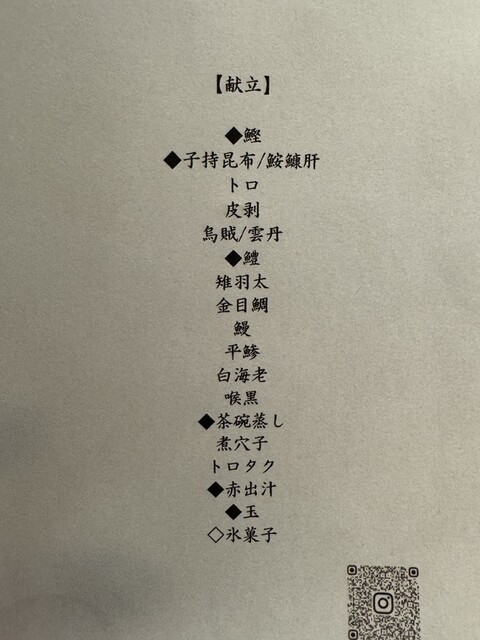 【献立】
◆鰹
◆子持昆布/鮟鱇肝
トロ
皮剥
烏賊/雲丹
◆鱧
雉羽太
金目鯛
鰻
平鯵
白海老
喉黒
◆茶碗蒸し
煮穴子
トロタク
◆赤出汁
◆玉
◇氷菓子